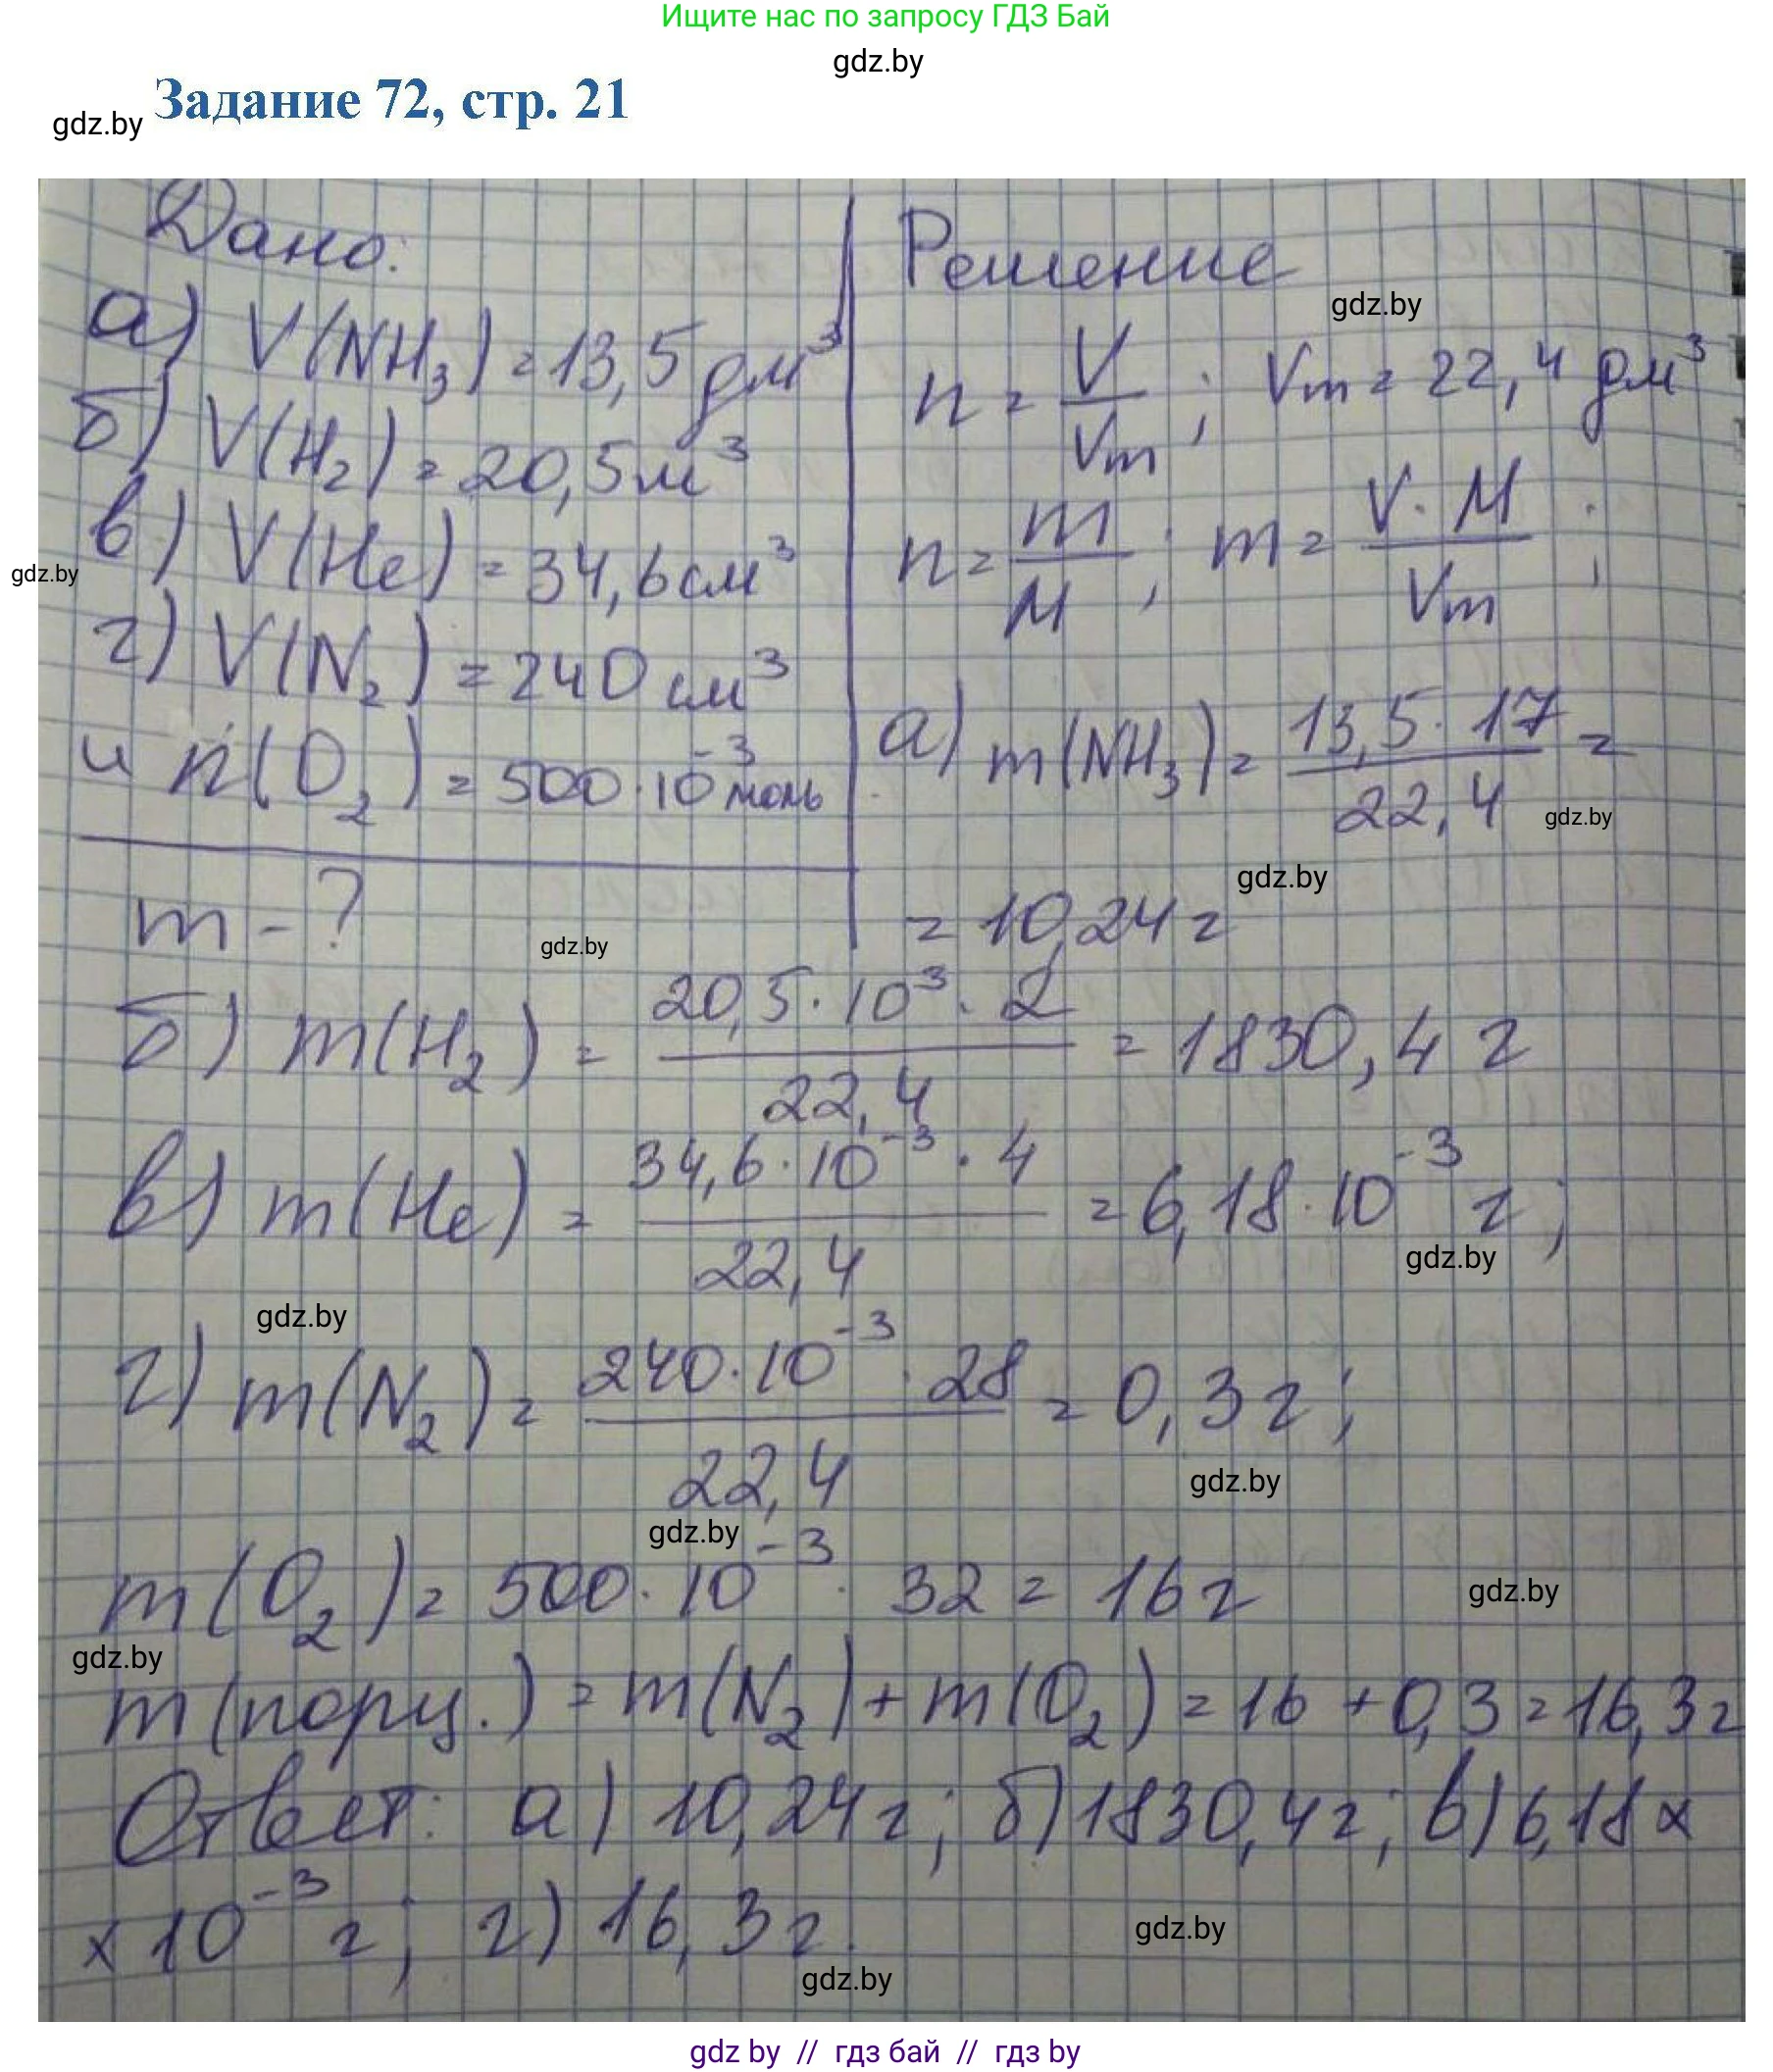 Ищите нас по запросу ГДЗ Бай
gdz.by
Задание 72, стр. 21
gdz.by
Дано:
а) V(NH₃) = 13,5 дм³
б) V(H₂) = 20,5 м³
в) V(He) = 34,6 см³
gdz.by
г) V(N₂) = 240 см³
и n(O₂) = 500 · 10⁻³ моль
m - ?
gdz.by
Решение
gdz.by
n = V/Vm ; Vm = 22,4 дм³
n = m/M ; m = V · M/Vm ;
а) m(NH₃) = 13,5 · 17/22,4 =
gdz.by
gdz.by
= 10,24 г
б) m(H₂) = 20,5 · 10³ · 2/22,4 = 1830,4 г
в) m(He) = 34,6 · 10⁻³ · 4/22,4 = 6,18 · 10⁻³ г ;
gdz.by
gdz.by
г) m(N₂) = 240 · 10⁻³ · 28/22,4 = 0,3 г ;
gdz.by
gdz.by
m(O₂) = 500 · 10⁻³ · 32 = 16 г
gdz.by
gdz.by
m(порц.) = m(N₂) + m(O₂) = 16 + 0,3 = 16,3 г
Ответ: а) 10,24 г ; б) 1830,4 г ; в) 6,18 ×
× 10⁻³ г ; г) 16,3 г.
gdz.by
gdz.by
gdz by // гдз бай // гдз by